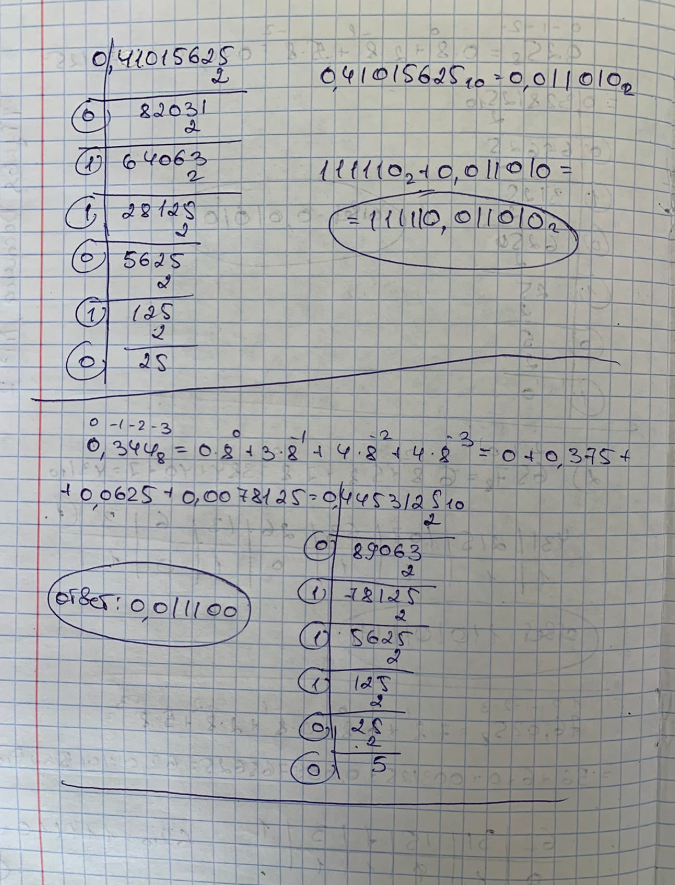 0,41015625
2
0 82031
2
1 64063
2
1 28125
2
0 5625
2
1 125
2
0 25
0,41015625₁₀ = 0,011010₂
111110₂ + 0,011010 =
= 111110,011010₂
0 -1 -2 -3
0,344₈ = 0·8⁰ + 3·8⁻¹ + 4·8⁻² + 4·8⁻³ = 0 + 0,375 +
+ 0,0625 + 0,0078125 = 0,4453125₁₀
2
0 89063
2
1 78125
2
1 5625
2
1 125
2
0 25
2
0 5
ответ: 0,011100